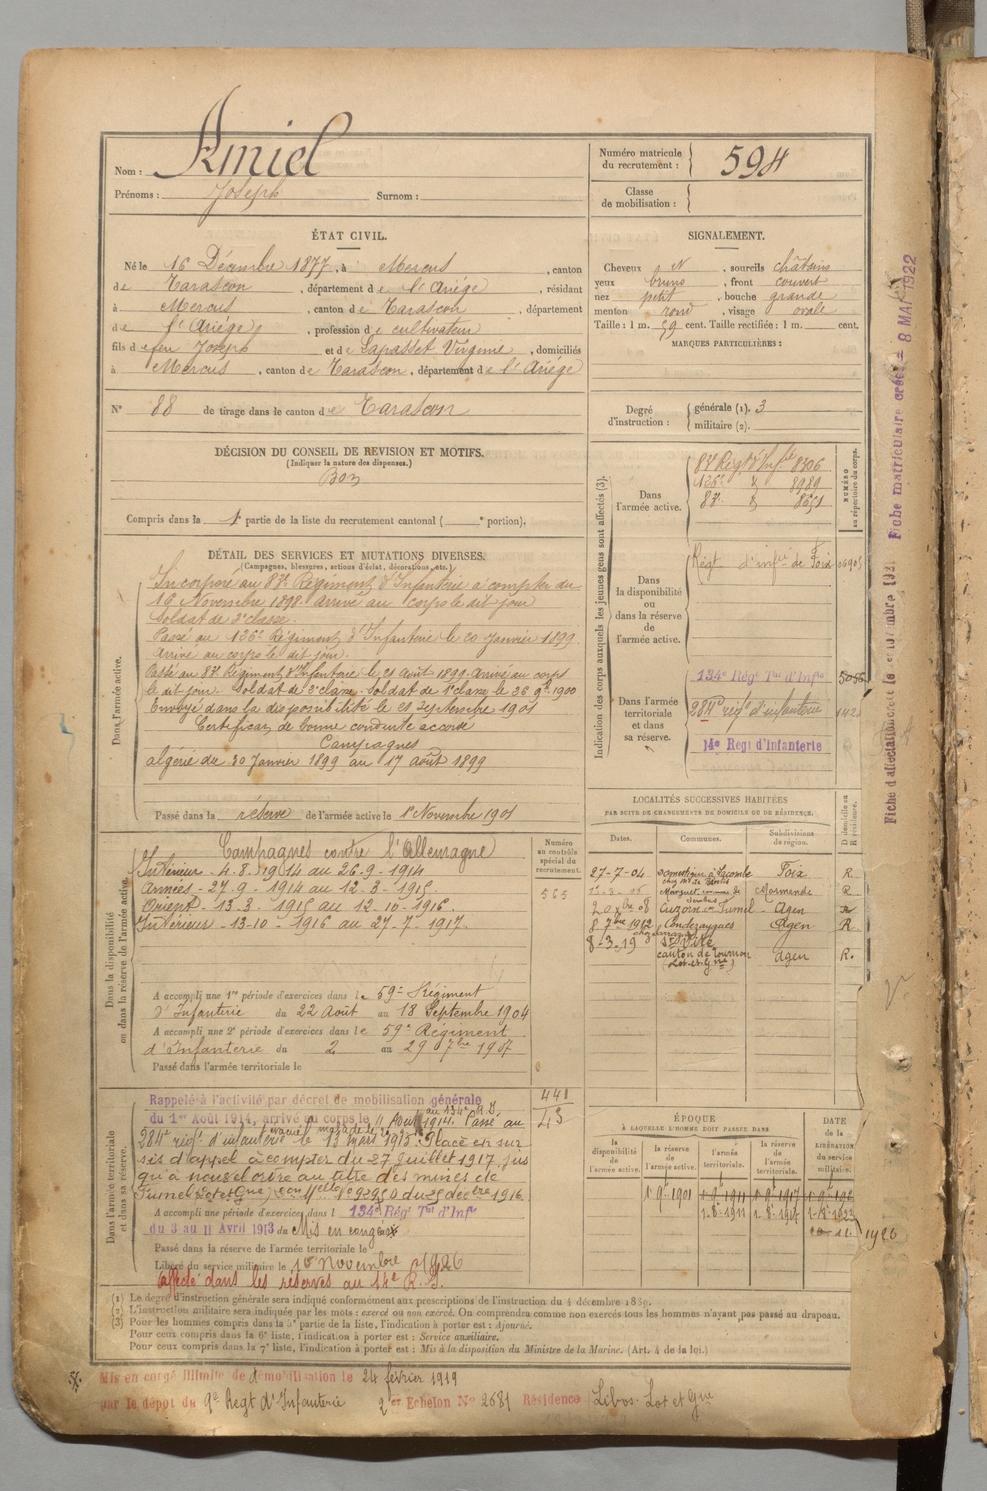 Nom : Amiel
Prénoms : Joseph Surnom :
Numéro matricule du recrutement : 594
Classe de mobilisation :
ÉTAT CIVIL.
Né le 16 Décembre 1877, à Mercus, canton
de Tarascon, département de l'Ariége, résidant
à Mercus, canton de Tarascon, département
de l'Ariége, profession de cultivateur
fils de feu Joseph et de Lapasset Virginie, domiciliés
à Mercus, canton de Tarascon, département de l'Ariége
N° 88 de tirage dans le canton de Tarascon
SIGNALEMENT.
Cheveux N, sourcils châtains
yeux bruns, front couvert
nez petit, bouche grande
menton rond, visage ovale
Taille : 1 m. 59 cent. Taille rectifiée : 1 m. cent.
MARQUES PARTICULIÈRES :
Degré d'instruction : générale (1). 3
militaire (2).
DÉCISION DU CONSEIL DE REVISION ET MOTIFS.
(Indiquer la nature des dispenses.)
Bon
Compris dans la 1e partie de la liste du recrutement cantonal ( e portion).
DÉTAIL DES SERVICES ET MUTATIONS DIVERSES.
(Campagnes, blessures, actions d'éclat, décorations, etc.)
Dans l'armée active.
Incorporé au 83e Régiment d'Infanterie à compter du
19 Novembre 1898. Arrivé au corps le dit jour
Soldat de 2e classe.
Passé au 126e Régiment d'Infanterie le 20 Janvier 1899.
Arrivé au corps le dit jour.
Passé au 83e Régiment d'Infanterie le 21 Août 1899. Arrivé au corps
le dit jour. Soldat de 2e classe. Soldat de 1e classe le 26 9bre 1900
Envoyé dans la disponibilité le 20 Septembre 1901
Certificat de bonne conduite accordé
Campagnes
Algérie du 30 Janvier 1899 au 17 Août 1899
Passé dans la réserve de l'armée active le 1er Novembre 1901
Indication des corps auxquels les jeunes gens sont affectés (3).
NUMÉRO au répertoire du corps.
Dans l'armée active.
83e Régt d'Infie 8306
126e d 8989
83e d 8651
Dans la disponibilité ou dans la réserve de l'armée active.
Régt d'infie de Foix
Dans l'armée territoriale et dans sa réserve.
134e Régt Tal d'Infie
284e régt d'infanterie
14e Régt d'Infanterie
Dans la disponibilité ou dans la réserve de l'armée active.
Campagnes contre l'Allemagne
Intérieur - 4.8.1914 au 26.9-1914
Armées - 27.9-1914 au 12-3-1915.
Orient - 13.3-1915 au 12-10-1916.
Intérieur - 13-10-1916 au 27-7-1917.
Numéro au contrôle spécial du recrutement.
565
A accompli une 1re période d'exercices dans le 59e Régiment
d'Infanterie du 22 Août au 18 Septembre 1904
A accompli une 2e période d'exercices dans le 59e Régiment
d'Infanterie du 2 au 29 7bre 1907
Passé dans l'armée territoriale le
LOCALITÉS SUCCESSIVES HABITÉES
PAR SUITE DE CHANGEMENTS DE DOMICILE OU DE RÉSIDENCE.
Dates. Communes. Subdivisions de région. D domicile ou R résidence.
27-7-04 domestique à Lacombe Foix R
Marmande R
20 xbre 08 Cuzorn Fumel Agen R
8 7bre 1912 Condezaygues Agen R
8-3-19 St Vite canton de Tournon (Lot-et-Gne) Agen R.
Dans l'armée territoriale et dans sa réserve.
Rappelé à l'activité par décret de mobilisation générale
du 1er Août 1914, arrivé au corps le 11 Août 1914. Passé au
284e régt d'infanterie le 13 mars 1915. Placé en sur
sis d'appel à compter du 27 Juillet 1917 jus
qu'à nouvel ordre au titre des mines de
Fumel (Lot et Gne) 92950 du 25 décbre 1916.
441
43
A accompli une période d'exercices dans l 134e Régt Tal d'Infie
du 3 au 11 Avril 1913 du Mis en congé
Passé dans la réserve de l'armée territoriale le
Libéré du service militaire le 10 Novembre 1926
affecté dans les réserves au 14e R. I.
ÉPOQUE
À LAQUELLE L'HOMME DOIT PASSER DANS
la disponibilité de l'armée active. la réserve de l'armée active. l'armée territoriale. la réserve de l'armée territoriale. DATE de la LIBÉRATION du service militaire.
1.9bre 1901 1.9bre 1911 1.9bre 1917
1-8-1911 1.8-1917
1926
(1) Le degré d'instruction générale sera indiqué conformément aux prescriptions de l'instruction du 4 décembre 1889.
(2) L'instruction militaire sera indiquée par les mots : exercé ou non exercé. On comprendra comme non exercés tous les hommes n'ayant pas passé au drapeau.
(3) Pour les hommes compris dans la 5e partie de la liste, l'indication à porter est : Ajourné.
Pour ceux compris dans la 6e liste, l'indication à porter est : Service auxiliaire.
Pour ceux compris dans la 7e liste, l'indication à porter est : Mis à la disposition du Ministre de la Marine. (Art. 4 de la loi.)
Mis en congé illimité de démobilisation le 24 février 1919
par le dépôt du 9e Régt d'Infanterie 2er Echelon No 2681 Résidence Libos Lot et Gne
Fiche matriculaire créée le 8 MAI 1922